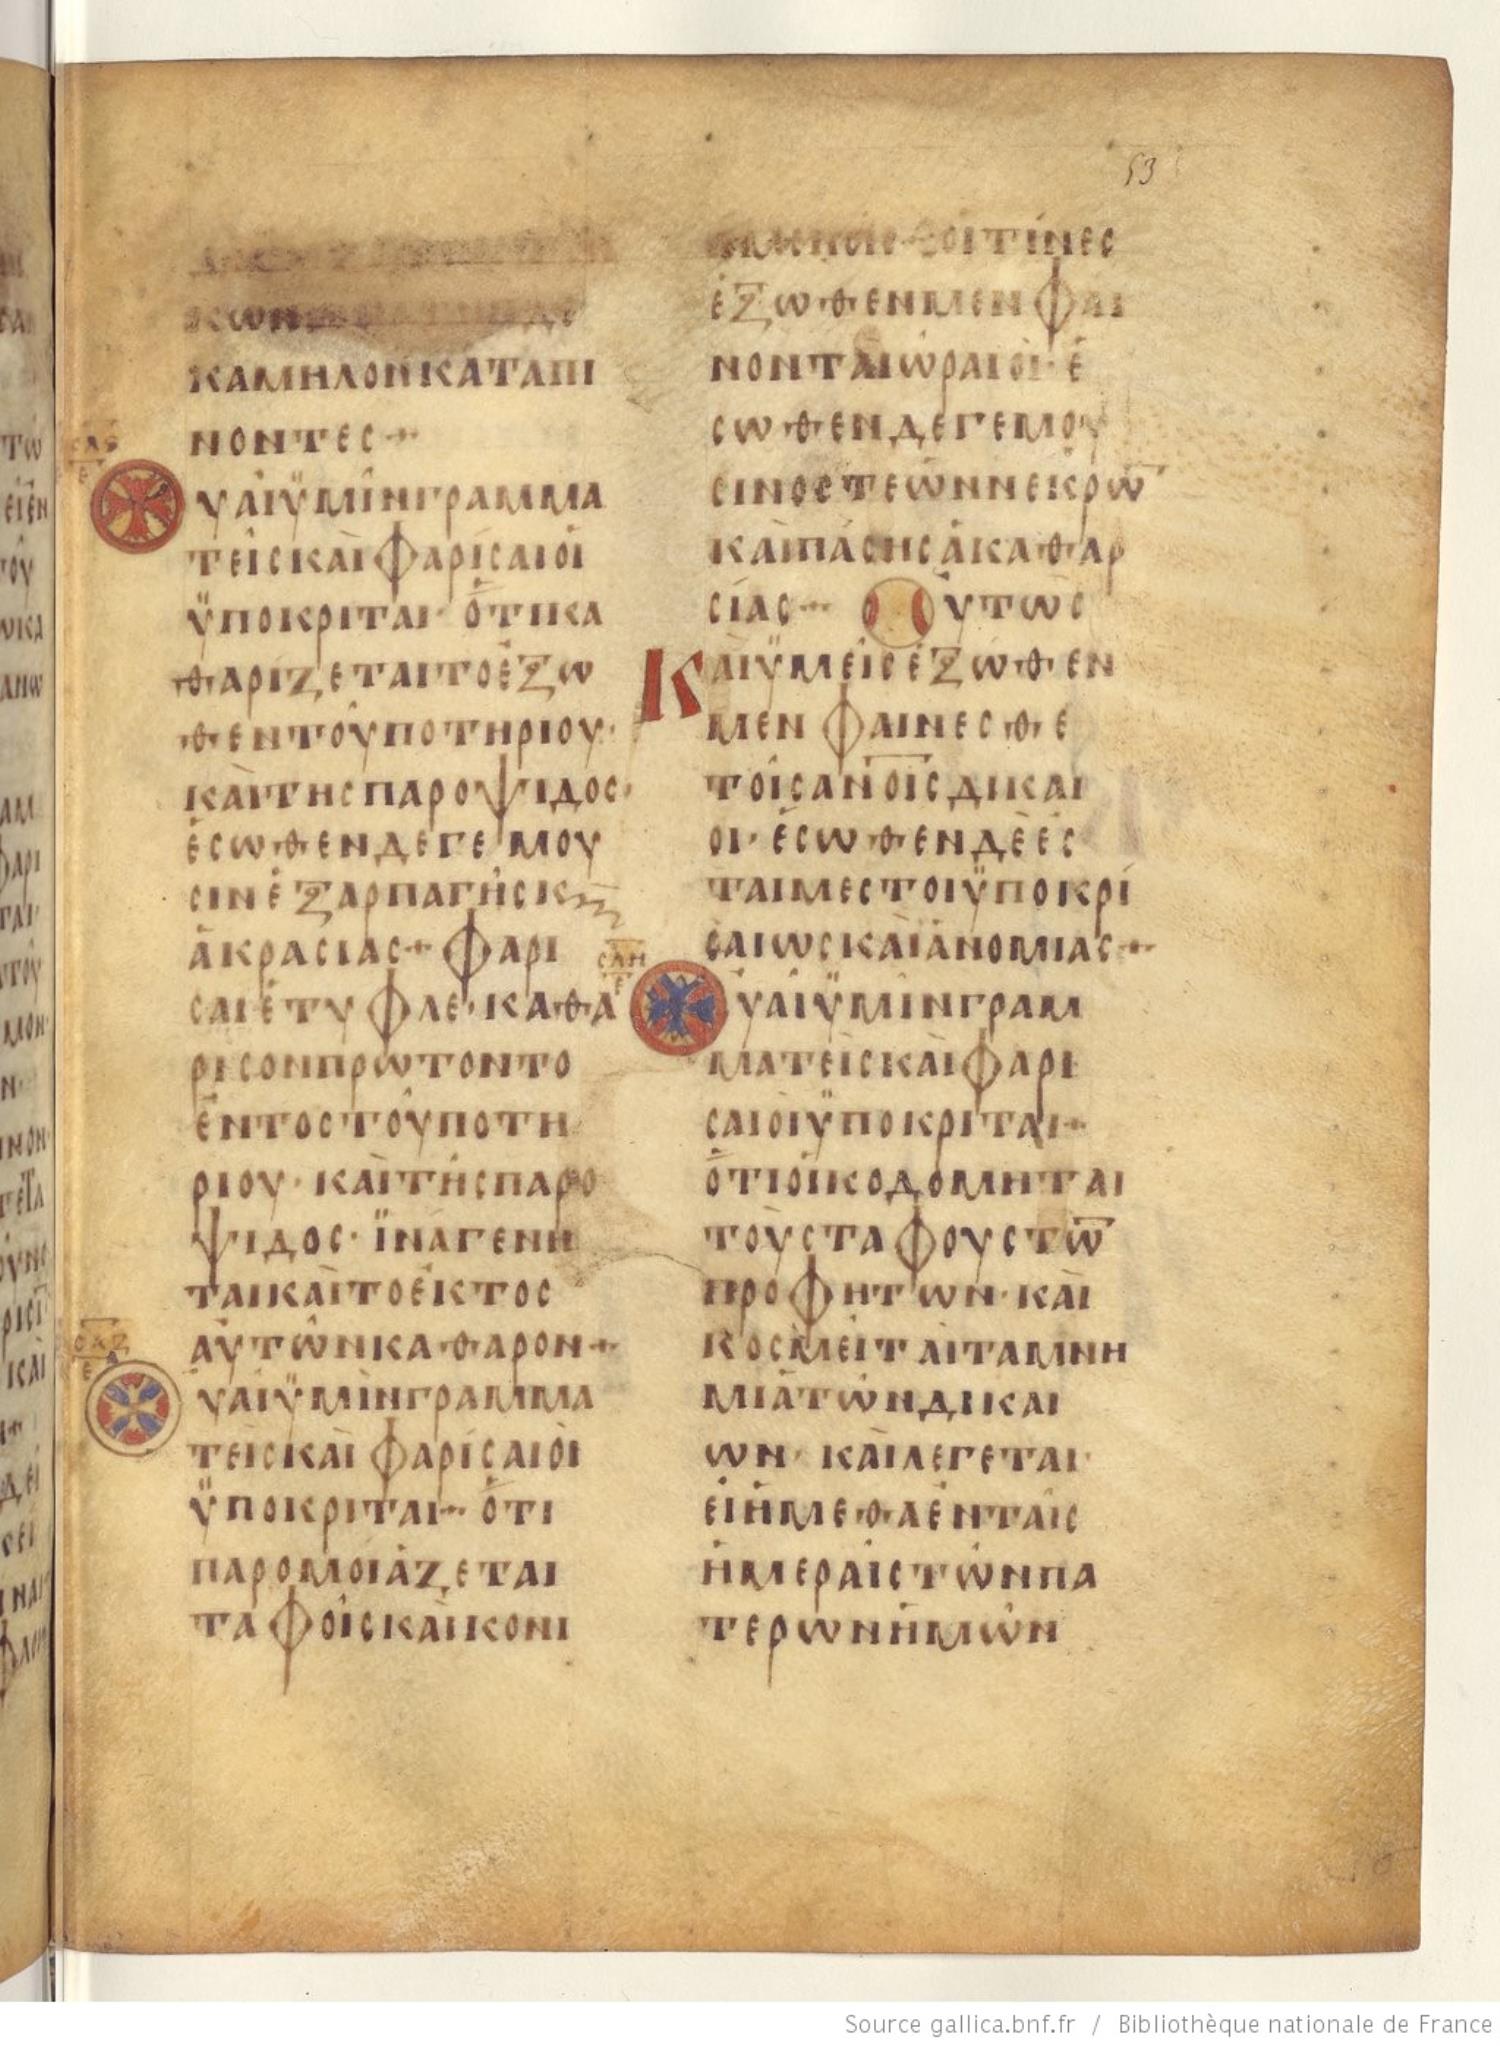 53
ΚΑΜΗΛΟΝΚΑΤΑΠΙ
ΝΟΝΤΕΣ
ΟΥΑΙΫΜΙΝΓΡΑΜΜΑ
ΤΕΙΣΚΑΙΦΑΡΙΣΑΙΟΙ
ΫΠΟΚΡΙΤΑΙ· ΟΤΙΚΑ
ΘΑΡΙΖΕΤΑΙΤΟΕΞΩ
ΘΕΝΤΟΥΠΟΤΗΡΙΟΥ·
ΚΑΙΤΗΣΠΑΡΟΨΙΔΟΣ·
ΕΣΩΘΕΝΔΕΓΕΜΟΥ
ΣΙΝΕΞΑΡΠΑΓΗΣΚ
ΑΚΡΑΣΙΑΣ ΦΑΡΙ
ΣΑΙΕΤΥΦΛΕ·ΚΑΘΑ
ΡΙΣΟΝΠΡΩΤΟΝΤΟ
ΕΝΤΟΣΤΟΥΠΟΤΗ
ΡΙΟΥ· ΚΑΙΤΗΣΠΑΡΟ
ΨΙΔΟΣ· ΪΝΑΓΕΝΗ
ΤΑΙΚΑΙΤΟΕΚΤΟΣ
ΑΥΤΩΝΚΑΘΑΡΟΝ
ΟΥΑΙΫΜΙΝΓΡΑΜΜΑ
ΤΕΙΣΚΑΙΦΑΡΙΣΑΙΟΙ
ΫΠΟΚΡΙΤΑΙ ΟΤΙ
ΠΑΡΟΜΟΙΑΖΕΤΑΙ
ΤΑΦΟΙΣΚΑΙΚΟΝΙ
ΟΙΤΙΝΕΣ
ΕΞΩΘΕΝΜΕΝΦΑΙ
ΝΟΝΤΑΙΩΡΑΙΟΙ· Ε
ΣΩΘΕΝΔΕΓΕΜΟΥ
ΣΙΝΟΣΤΕΩΝΝΕΚΡΩ̅
ΚΑΙΠΑΣΗΣΑΚΑΘΑΡ
ΣΙΑΣ ΟΥΤΩΣ
ΚΑΙΫΜΕΙΣΕΞΩΘΕΝ
ΜΕΝΦΑΙΝΕΣΘΕ
ΤΟΙΣΑΝ̅Ο̅Ι̅ΣΔΙΚΑΙ
ΟΙ· ΕΣΩΘΕΝΔΕΕΣ
ΤΑΙΜΕΣΤΟΙΫΠΟΚΡΙ
ΣΑΙΩΣΚΑΙΑΝΟΜΙΑΣ
ΟΥΑΙΫΜΙΝΓΡΑΜ
ΜΑΤΕΙΣΚΑΙΦΑΡΙ
ΣΑΙΟΙΫΠΟΚΡΙΤΑΙ
ΟΤΙΟΙΚΟΔΟΜΗΤΑΙ
ΤΟΥΣΤΑΦΟΥΣΤΩ̅
ΠΡΟΦΗΤΩΝ·ΚΑΙ
ΚΟΣΜΕΙΤΑΙΤΑΜΝΗ
ΜΙΑΤΩΝΔΙΚΑΙ
ΩΝ· ΚΑΙΛΕΓΕΤΑΙ
ΕΙΗΜΕΘΑΕΝΤΑΙΣ
ΗΜΕΡΑΙΣΤΩΝΠΑ
ΤΕΡΩΝΗΜΩΝ
Source gallica.bnf.fr / Bibliothèque nationale de France